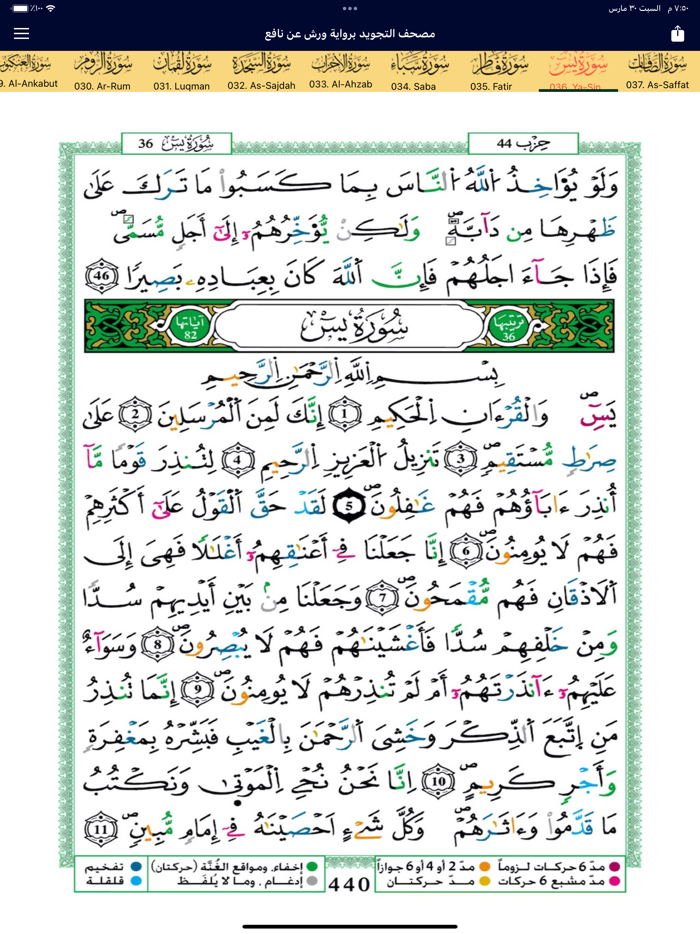 ٧:٥٠ م السبت ٣٠ مارس ••• ٪١٠٠
مصحف التجويد برواية ورش عن نافع
سورة العنكبوت سورة الروم سورة لقمان سورة السجدة سورة الأحزاب سورة سبأ سورة فاطر سورة يس سورة الصافات
9. Al-Ankabut 030. Ar-Rum 031. Luqman 032. As-Sajdah 033. Al-Ahzab 034. Saba 035. Fatir 036. Ya-Sin 037. As-Saffat
حِزْب 44 سُورَةُ يسٓ 36
وَلَوْ يُؤَاخِذُ اُ۬للَّهُ اُ۬لنَّاسَ بِمَا كَسَبُواْ مَا تَرَكَ عَلَىٰ
ظَهْرِهَا مِن دَآبَّةٖۖ وَلَٰكِنْ يُّؤَخِّرُهُمُۥٓ إِلَىٰٓ أَجَلٖ مُّسَمّىٗۖ
فَإِذَا جَآءَ اجَلُهُمْ فَإِنَّ اَ۬للَّهَ كَانَ بِعِبَادِهِۦ بَصِيراٗ 46
تَرْتِيبُهَا 36 سُورَةُ يسٓ آيَاتُهَا 82
بِسْمِ اِ۬للَّهِ اِ۬لرَّحْمَٰنِ اِ۬لرَّحِيمِ
يَسِٓۖ وَالْقُرْءَانِ اِ۬لْحَكِيمِ 1 إِنَّكَ لَمِنَ اَ۬لْمُرْسَلِينَ 2 عَلَىٰ
صِرَٰطٖ مُّسْتَقِيمٖۖ 3 تَنزِيلُ اُ۬لْعَزِيزِ اِ۬لرَّحِيمِ 4 لِتُنذِرَ قَوْماٗ مَّآ
أُنذِرَ ءَابَآؤُهُمْ فَهُمْ غَٰفِلُونَۖ 5 لَقَدْ حَقَّ اَ۬لْقَوْلُ عَلَىٰٓ أَكْثَرِهِمْ
فَهُمْ لَا يُومِنُونَۖ 6 إِنَّا جَعَلْنَا فِےٓ أَعْنَٰقِهِمُۥٓ أَغْلَٰلاٗ فَهِيَ إِلَى
اَ۬لَاذْقَانِ فَهُم مُّقْمَحُونَۖ 7 وَجَعَلْنَا مِنۢ بَيْنِ أَيْدِيهِمْ سُدّاٗ
وَمِنْ خَلْفِهِمْ سُدّاٗ فَأَغْشَيْنَٰهُمْ فَهُمْ لَا يُبْصِرُونَۖ 8 وَسَوَآءٌ
عَلَيْهِمُۥٓ ءَآنذَرْتَهُمُۥٓ أَمْ لَمْ تُنذِرْهُمْ لَا يُومِنُونَۖ 9 إِنَّمَا تُنذِرُ
مَنِ اِ۪تَّبَعَ اَ۬لذِّكْرَ وَخَشِيَ اَ۬لرَّحْمَٰنَ بِالْغَيْبِ فَبَشِّرْهُ بِمَغْفِرَةٖ
وَأَجْرٖ كَرِيمٍۖ 10 اِنَّا نَحْنُ نُحْيِ اِ۬لْمَوْتَىٰ وَنَكْتُبُ
مَا قَدَّمُواْ وَءَاثَٰرَهُمْۖ وَكُلَّ شَےْءٍ اَحْصَيْنَٰهُ فِےٓ إِمَامٖ مُّبِينٖۖ 11
مدّ 6 حركات لـزوماً مدّ 2 أو 4 أو 6 جوازاً إخفاء، ومواقع الغُنَّة (حركتان) تفخيم
مدّ مشبع 6 حركات مـدّ حركتـان 440 إدغام ، وما لا يُلفَـظ قلقلة